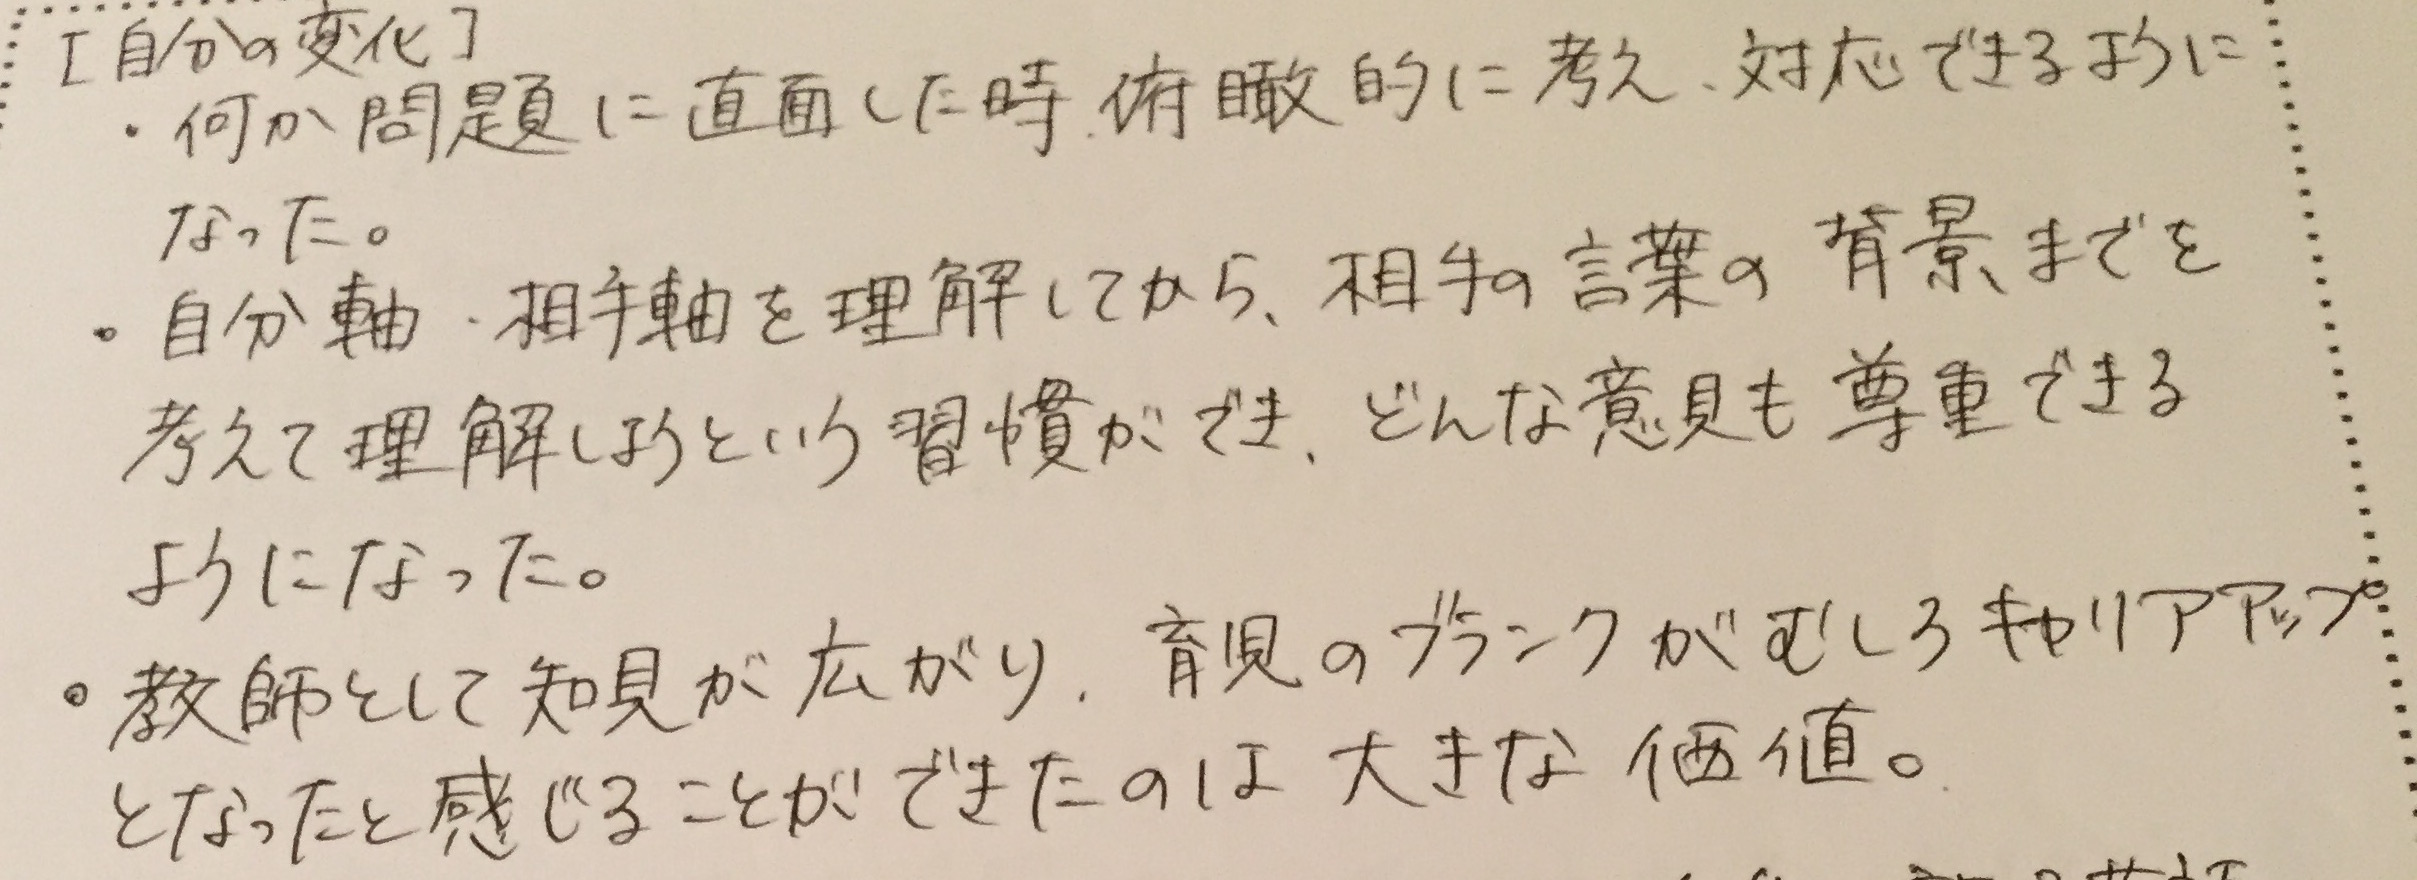 [自分の変化]
・何か問題に直面した時、俯瞰的に考え、対応できるように
なった。
・自分軸・相手軸を理解してから、相手の言葉の背景までを
考えて理解しようという習慣ができ、どんな意見も尊重できる
ようになった。
・教師として知見が広がり、育児のブランクがむしろキャリアアップ
となったと感じることができたのは大きな価値。